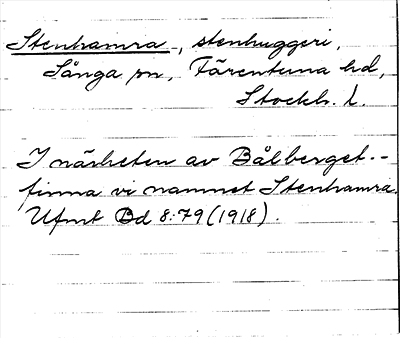 Stenhamra, stenhuggeri,
Sånga sn, Färentuna hd,
Stockh. l.
I närheten av Bålberget.-
finna vi namnet Stenhamra.
Ufmt Bd 8:79 (1918).